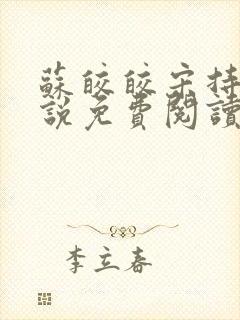 蘇皎皎宋持
說免費閱讀
李立春